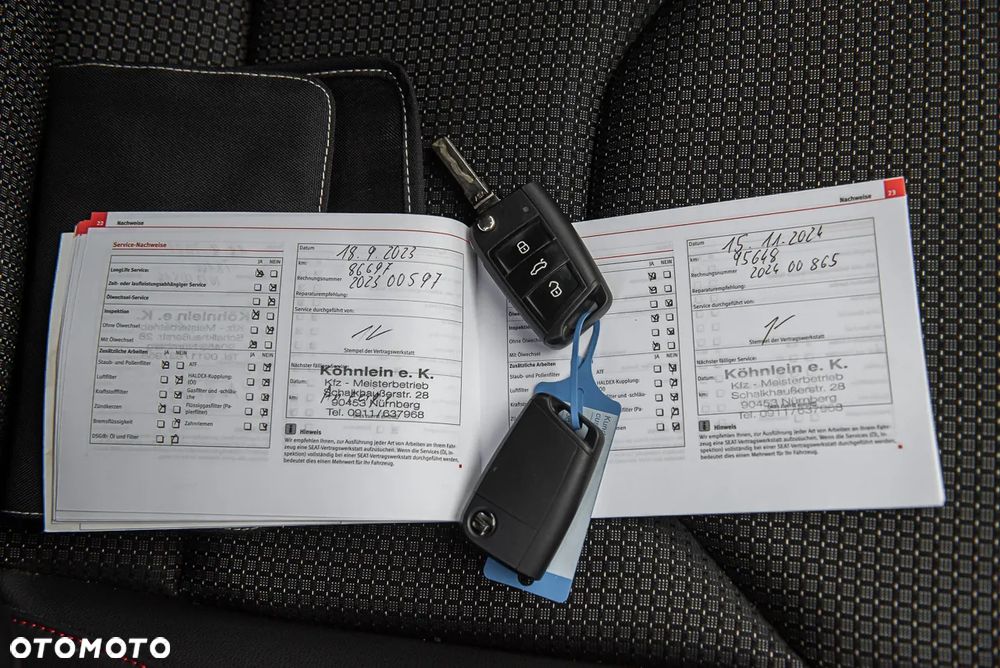 22 Nachweise
Service-Nachweise
JA NEIN
LongLife Service:
Zeit- oder laufleistungsabhängiger Service
Ölwechsel-Service
Inspektion
Ohne Ölwechsel
Mit Ölwechsel
Zusätzliche Arbeiten
JA NEIN JA NEIN
Staub- und Pollenfilter
ATF
Luftfilter
HALDEX-Kupplung:
(Öl)
Kraftstofffilter
Gasfilter und -schläu-
che
Zündkerzen
Flüssiggasfilter (Pa-
pierfilter)
Bremsflüssigkeit
Zahnriemen
DSG®: Öl und Filter
Datum 18.9.2023
km: 86697
Rechnungsnummer 2023 00597
Reparaturempfehlung:
Service durchgeführt von:
Stempel der Vertragswerkstatt
Nächster fälliger Service:
Datum:
km:
Köhnlein e. K.
Kfz - Meisterbetrieb
Schalkhaußerstr. 28
90453 Nürnberg
Tel. 0911/637968
i Hinweis
Wir empfehlen Ihnen, zur Ausführung jeder Art von Arbeiten an Ihrem Fahr-
zeug eine SEAT-Vertragswerkstatt aufzusuchen. Wenn die Services (Öl, In-
spektion) vollständig bei einer SEAT-Vertragswerkstatt durchgeführt werden,
bedeutet dies einen Mehrwert für Ihr Fahrzeug.
Nachweise 23
JA NEIN
Service
Ohne
Mit Ölwechsel
Zusätzliche Arbeiten
JA NEIN
Staub- und Pollenfilter
Luftfilter
HALDEX-Kupplung:
(Öl)
Gasfilter und -schläu-
che
Flüssiggasfilter (Pa-
pierfilter)
Zahnriemen
Datum 15.11.2024
km: 95648
Rechnungsnummer 2024 00 865
Reparaturempfehlung:
Service durchgeführt von:
Stempel der Vertragswerkstatt
Nächster fälliger Service:
Datum:
km:
Köhnlein e. K.
Kfz - Meisterbetrieb
Schalkhaußerstr. 28
90453 Nürnberg
Tel. 0911/637968
i Hinweis
Wir empfehlen Ihnen, zur Ausführung jeder Art von Arbeiten an Ihrem Fahr-
zeug eine SEAT-Vertragswerkstatt aufzusuchen. Wenn die Services (Öl, In-
spektion) vollständig bei einer SEAT-Vertragswerkstatt durchgeführt werden,
bedeutet dies einen Mehrwert für Ihr Fahrzeug.
OTOMOTO